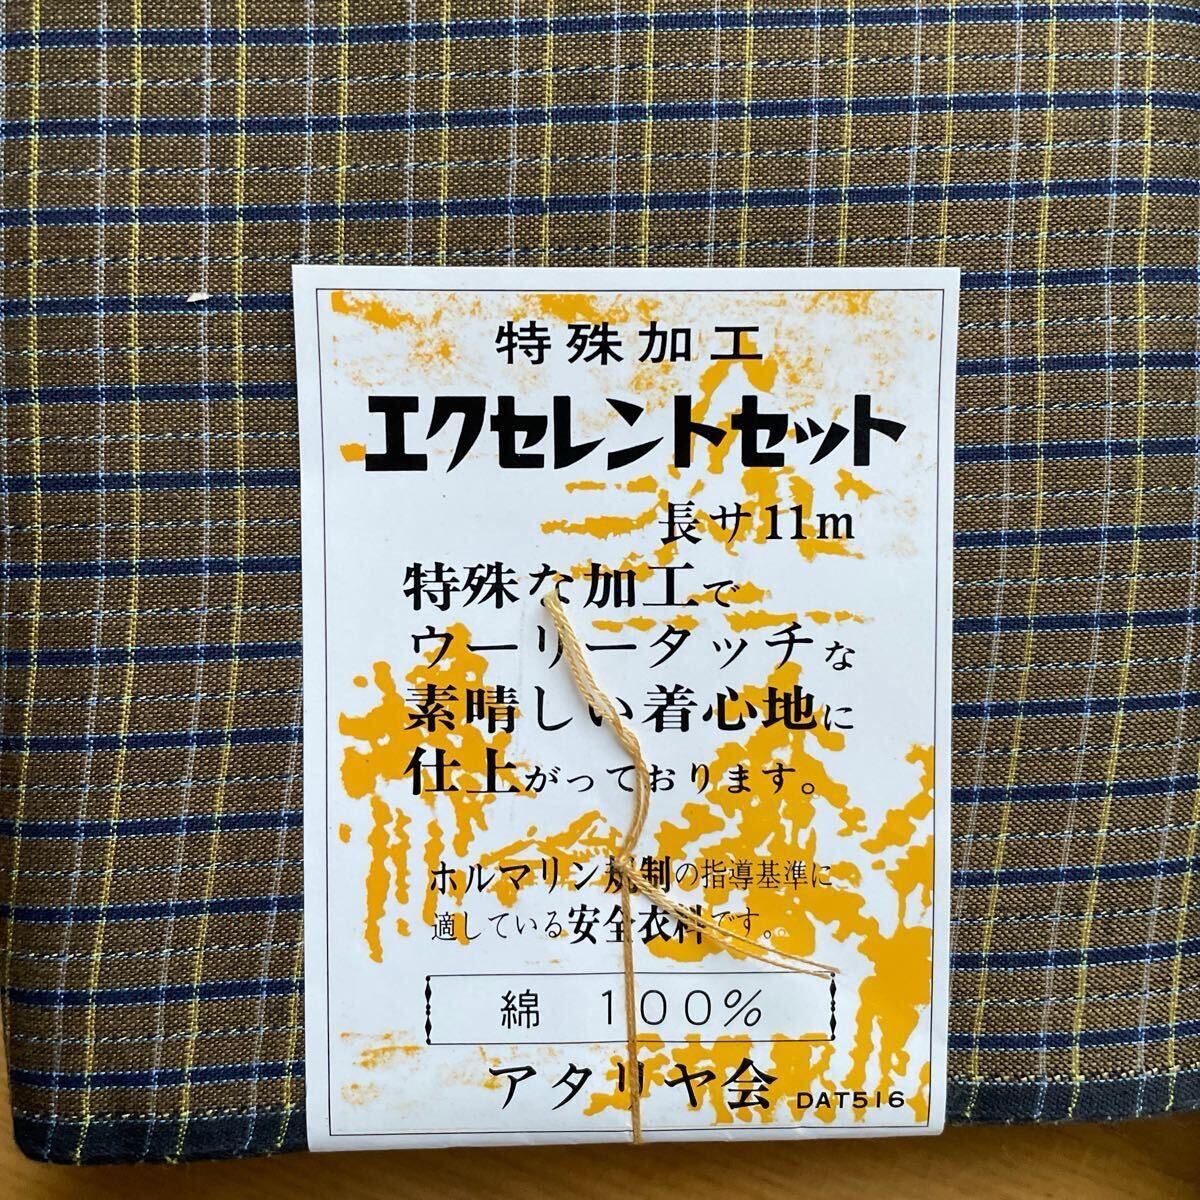 特殊加工
エクセレントセット
長サ11m
特殊な加工で
ウーリータッチな
素晴しい着心地に
仕上がっております。
ホルマリン規制の指導基準に
適している安全衣料です。
綿 100%
アタリヤ会 DAT516